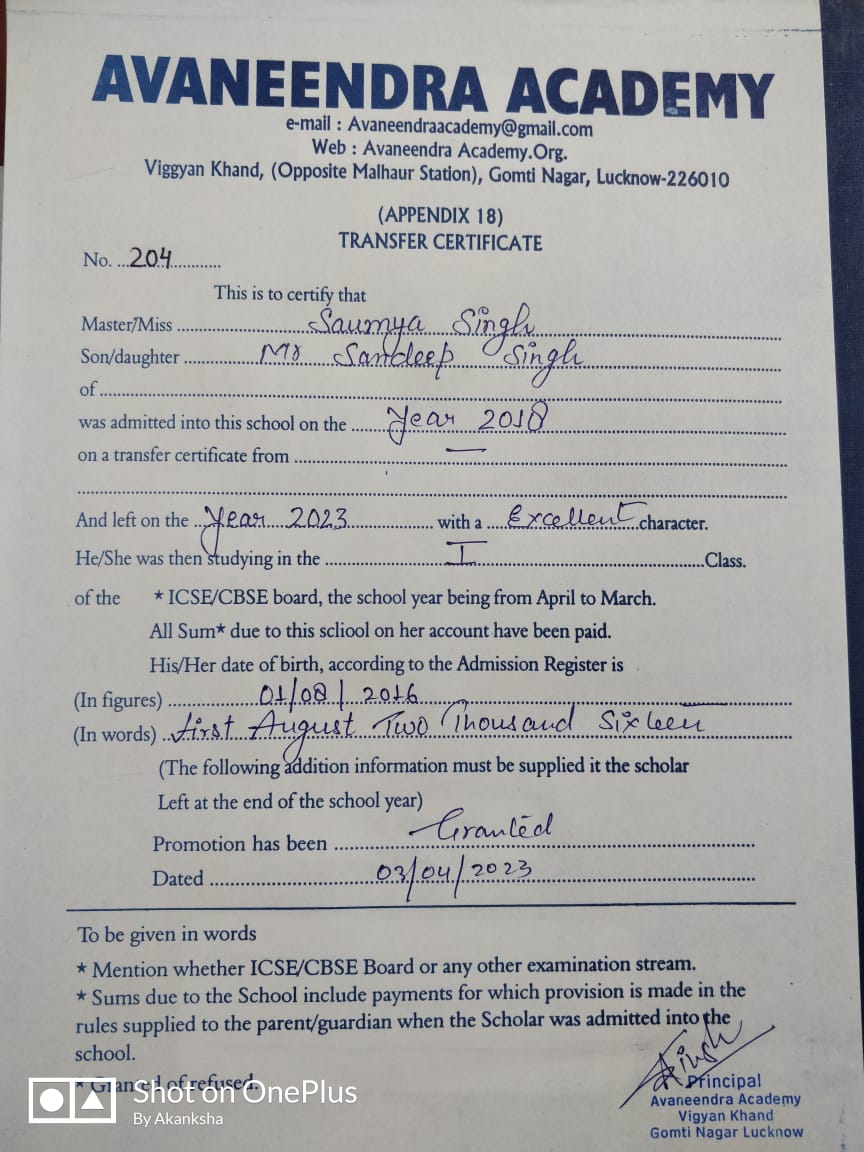 AVANEENDRA ACADEMY
e-mail : Avaneendraacademy@gmail.com
Web : Avaneendra Academy.Org.
Viggyan Khand, (Opposite Malhaur Station), Gomti Nagar, Lucknow-226010
(APPENDIX 18)
TRANSFER CERTIFICATE
No. ...204............
This is to certify that
Master/Miss ........ Saumya Singh ........
Son/daughter ........ Mr Sandeep Singh ........
of ........
was admitted into this school on the ...... Year 2018 ......
on a transfer certificate from ........ — ........
And left on the ..Year 2023.......... with a ....Excellent..character.
He/She was then studying in the ........ I ........Class.
of the * ICSE/CBSE board, the school year being from April to March.
All Sum* due to this scliool on her account have been paid.
His/Her date of birth, according to the Admission Register is
(In figures) ........ 01/08/2016 ........
(In words) ..first August Two Thousand Sixteen........
(The following addition information must be supplied it the scholar
Left at the end of the school year)
Promotion has been ........ Granted ........
Dated ........ 03/04/2023 ........
To be given in words
* Mention whether ICSE/CBSE Board or any other examination stream.
* Sums due to the School include payments for which provision is made in the
rules supplied to the parent/guardian when the Scholar was admitted into the
school.
* Granted of refused.
Singh
Principal
Avaneendra Academy
Vigyan Khand
Gomti Nagar Lucknow
Shot on OnePlus
By Akanksha